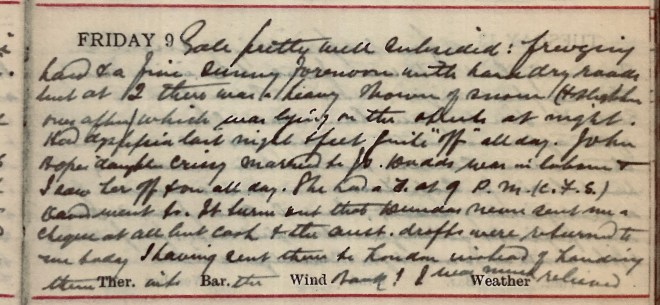 FRIDAY 9 Gale pretty well subsided: freezing
hard & a fine sunny forenoon with hard dry roads
but at 2 there was a heavy shower of snow (& slighter
ones after) which was lying on the streets at night.
Had dyspepsia last night & felt quite "off" all day. John
Hope's daughter Crissy married to Jo. was in labour &
I saw her off & on all day. She had a at 9 P.M. (K.T.S.)
went to. It turns out that Dundas never sent me a
cheque at all but cash & the Aust. drafts were returned to
me today I having sent them to London instead of handing
them Ther. into Bar. the Wind Bank! I was much relieved Weather